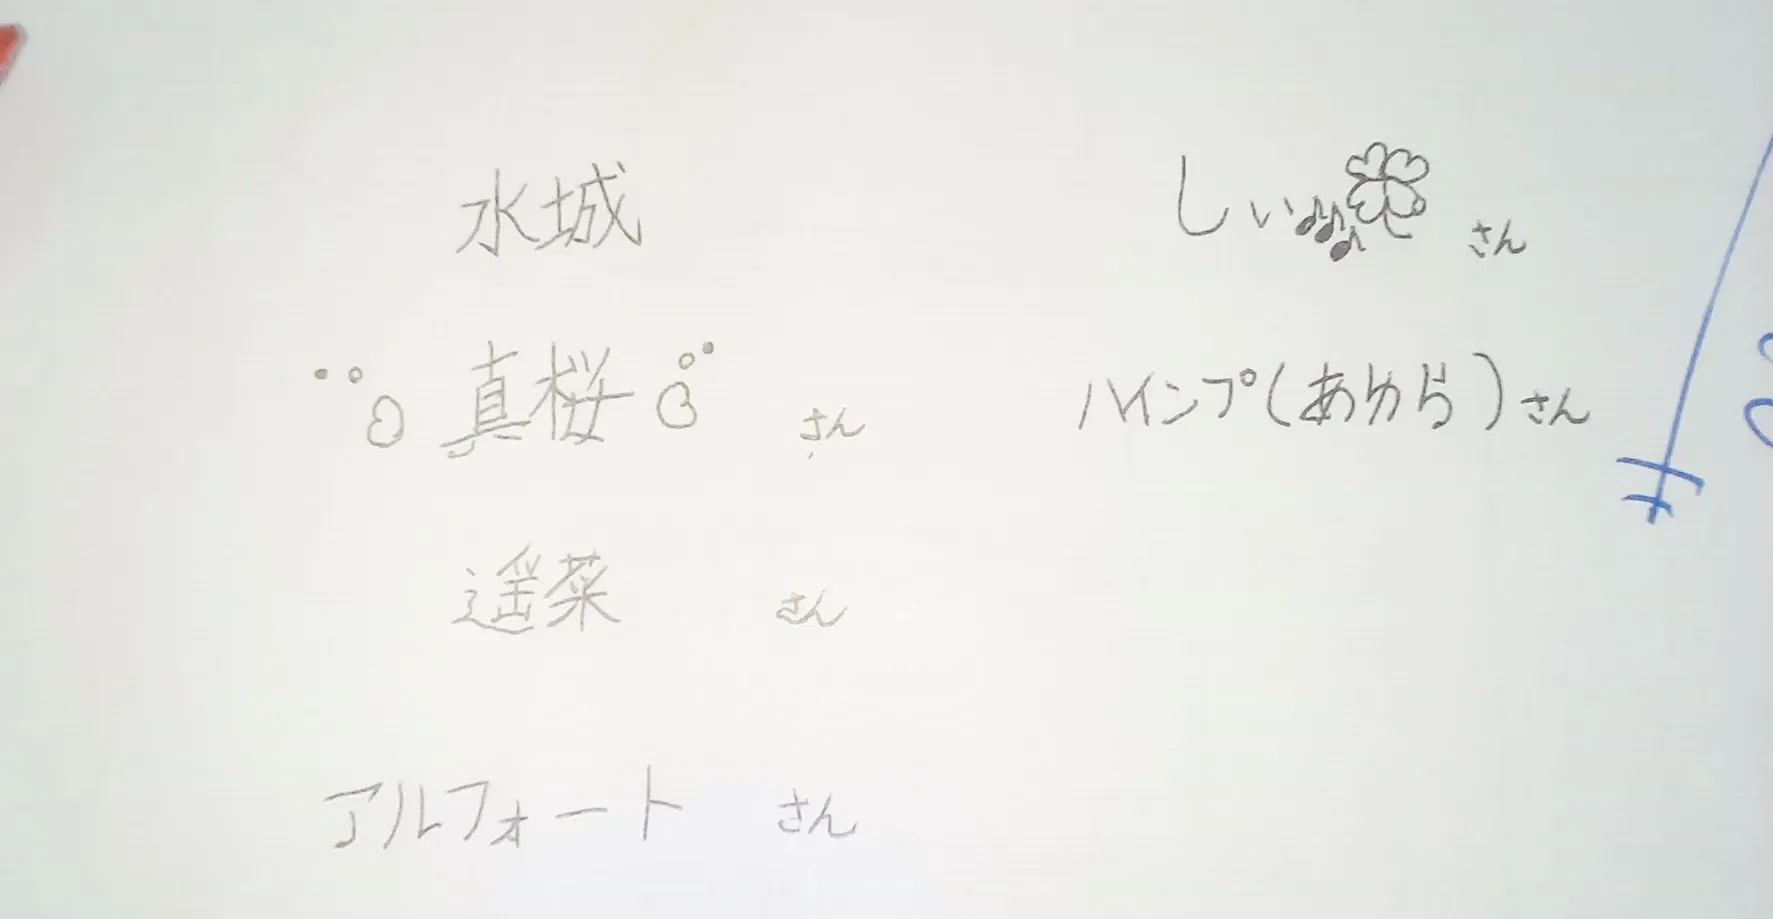 水城
真桜 さん
遥菜 さん
アルフォート さん
しぃ♪♪♪🍀 さん
ハインプ(あゆら)さん